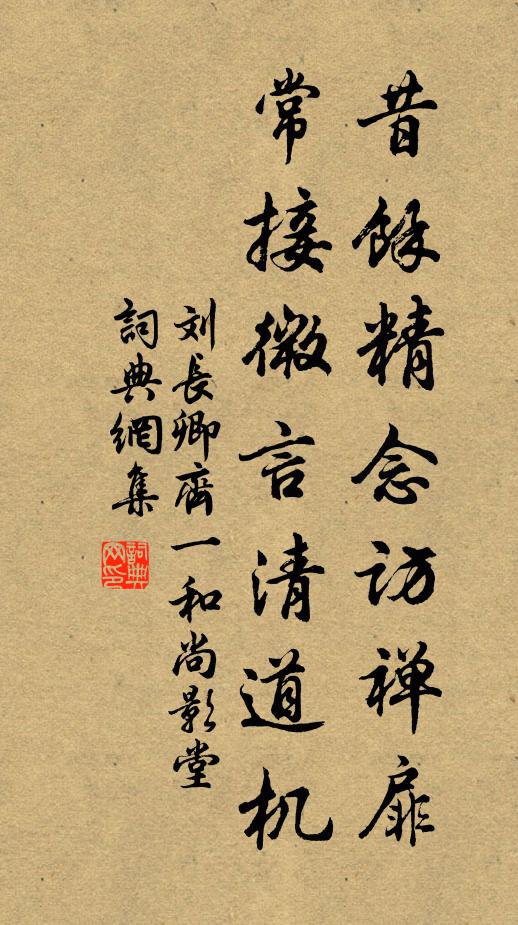 昔餘精念訪禅扉
常接微言清道机
刘長卿齊一和尚影堂
詞典網集
詞典网印